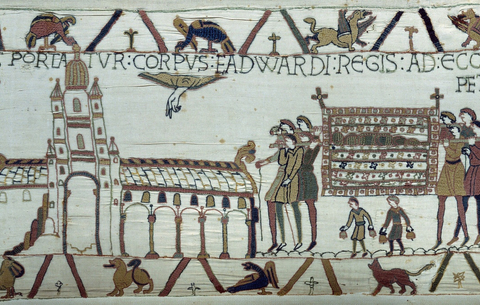 PORTATVR: CORPVS: EADWARDI: REGIS: AD: ECC
PET